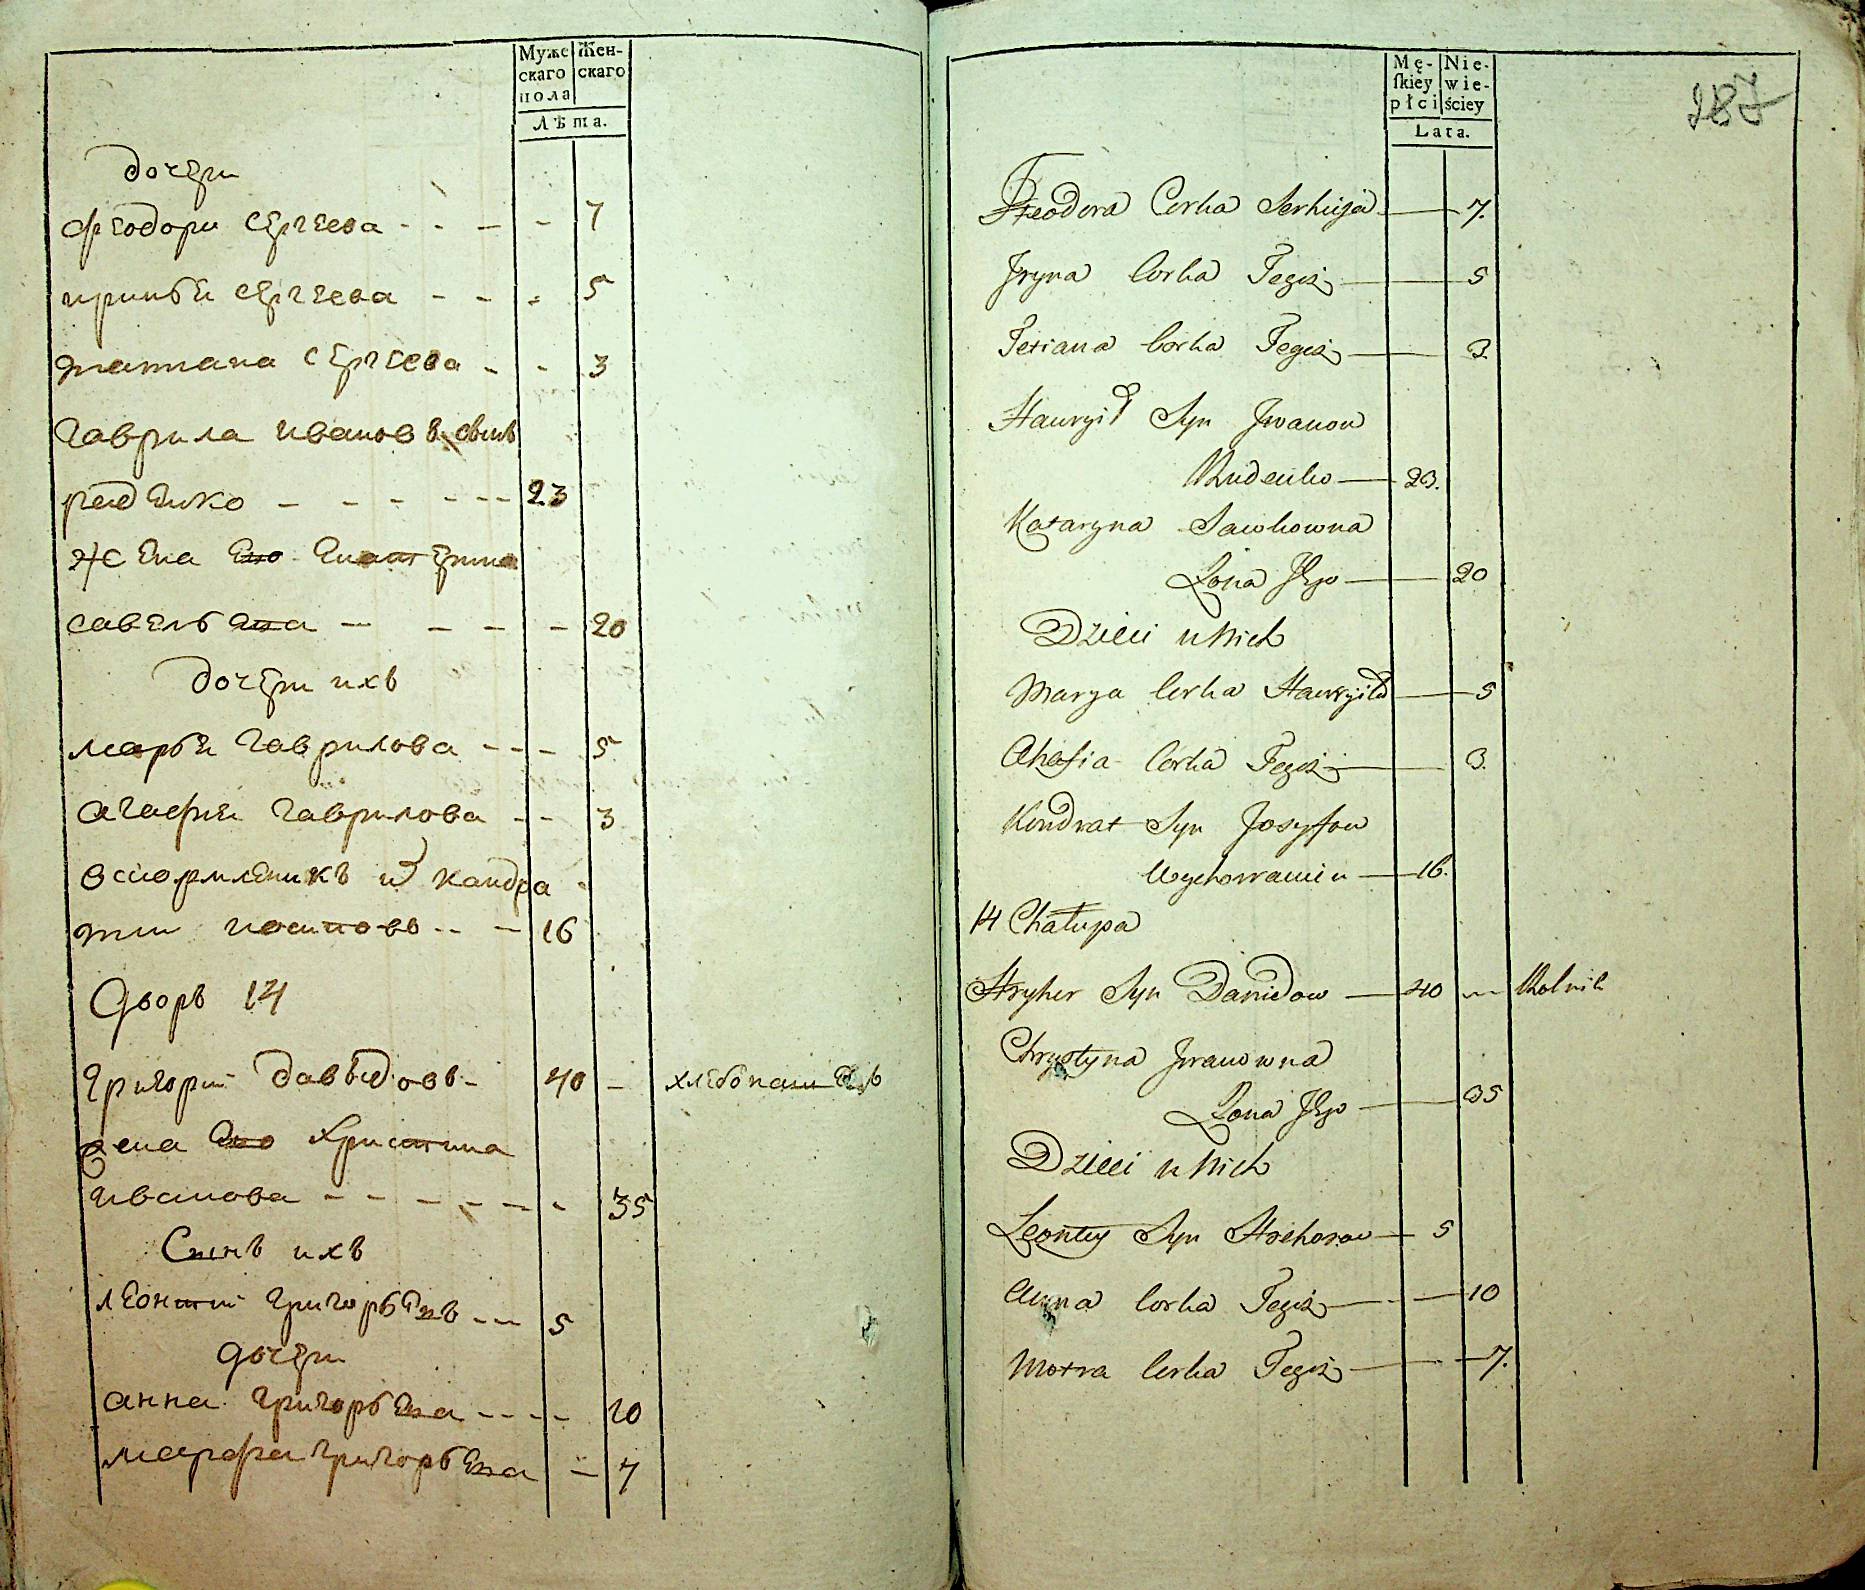 Муже
скаго
пола
Жен-
скаго
Лѣта.
дочери
феодори сергеева - - - - 7
сергеева - - - 5
татиана сергеева - - 3
гаврила иванов
руденко - - - - - - 23
жена его екатерина
савельева - - - - 20
дочери ихъ
марья гаврилова - - - 5
агафия гаврилова - - 3
кондра
тии иосиповъ - - - 16
Дворъ 14
григории давыдовъ - 40 - хлебопашецъ
жена его христина
иванова - - - - - - - 35
Сынъ ихъ
леонтии григорьевъ - - - 5
дочери
анна григорьева - - - - 10
марфа григорьева - 7
Mę-
skiey
płci
Nie-
wie-
ściey
Lata.
287
Feodora Corka Serhieja 7.
Iryna Corka Tegoż 5
Tetiana Corka Tegoż 3.
Hawryił Syn Iwanow
Rudenko 23.
Kataryna Sawkowna
Żona Jego 20
Dzieci u Nich
Marya Corka Hawryiła 5
Ahafia Corka Tegoż 3.
Kondrat Syn Josyfow
Wychowaniec 16.
14 Chałupa
Hryher Syn Dawidow 40 Rolnik
Chrystyna Iwanowna
Żona Jego 35
Dzieci u Nich
Leontiy Syn Hrehorow 5
Anna Corka Tegoż 10
Motra Corka Tegoż 7.